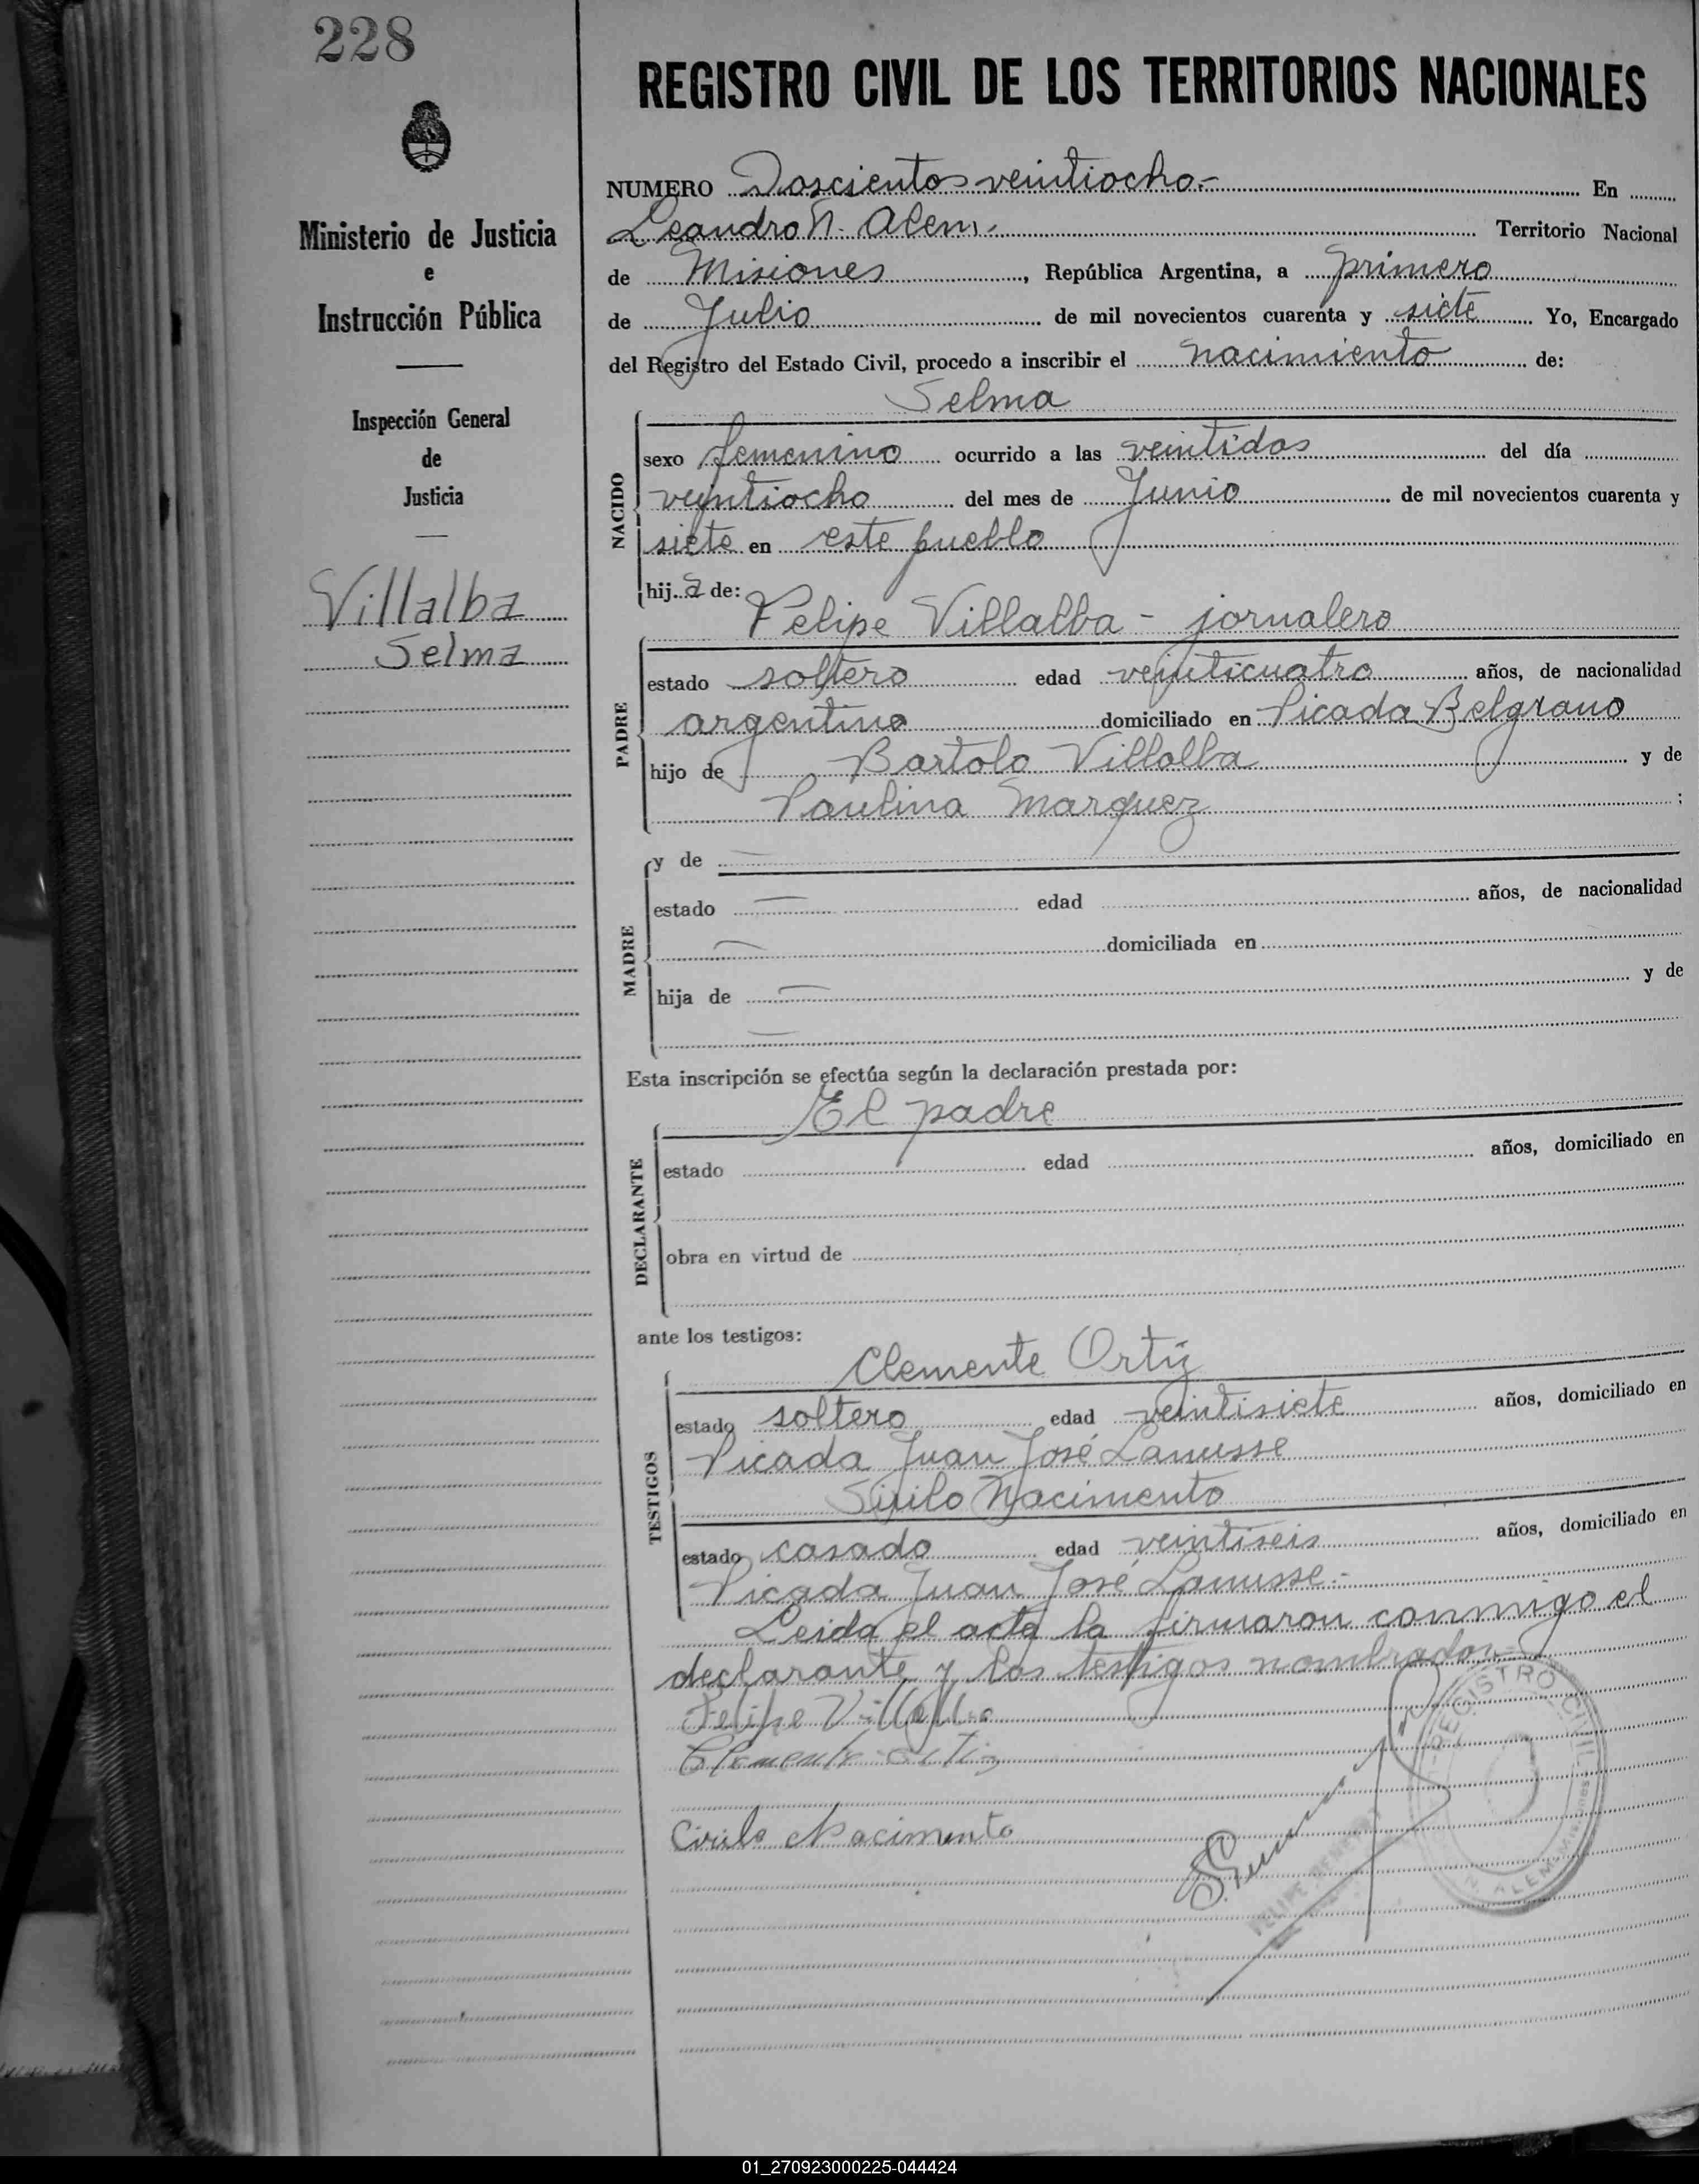 228
Ministerio de Justicia
e
Instrucción Pública
Inspección General
de
Justicia
Villalba
Selma
REGISTRO CIVIL DE LOS TERRITORIOS NACIONALES
NUMERO Doscientos veintiocho.- En
Leandro N. Alem.- Territorio Nacional
de Misiones, República Argentina, a primero
de Julio de mil novecientos cuarenta y siete Yo, Encargado
del Registro del Estado Civil, procedo a inscribir el nacimiento de:
Selma
NACIDO
sexo femenino ocurrido a las veintidos del día
veintiocho del mes de Junio de mil novecientos cuarenta y
siete en este pueblo
hija de:
Felipe Villalba - jornalero
PADRE
estado soltero edad veinticuatro años, de nacionalidad
argentino domiciliado en Picada Belgrano
hijo de Bartolo Villalba y de
Paulina Marquez ;
MADRE
y de —
estado — edad años, de nacionalidad
— domiciliada en
hija de — y de
—
Esta inscripción se efectúa según la declaración prestada por:
El padre
DECLARANTE
estado edad años, domiciliado en
obra en virtud de
ante los testigos:
Clemente Ortiz
TESTIGOS
estado soltero edad veintisiete años, domiciliado en
Picada Juan José Lanusse
Sirilo Nacimento
estado casado edad veintiseis años, domiciliado en
Picada Juan José Lanusse.-
Leida el acta la firmaron conmigo el
declarante y los testigos nombrados.-
Felipe Villalba
Clemente Ortiz
Cirilo Nacimento
REGISTRO CIVIL
N. ALEM Misiones
01_270923000225-044424